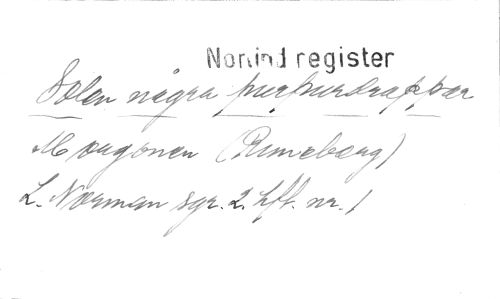 Norlind register
Solen några purpurdroppar
Morgonen (Runeberg)
L. Norman sgr. 2. hft. nr. 1